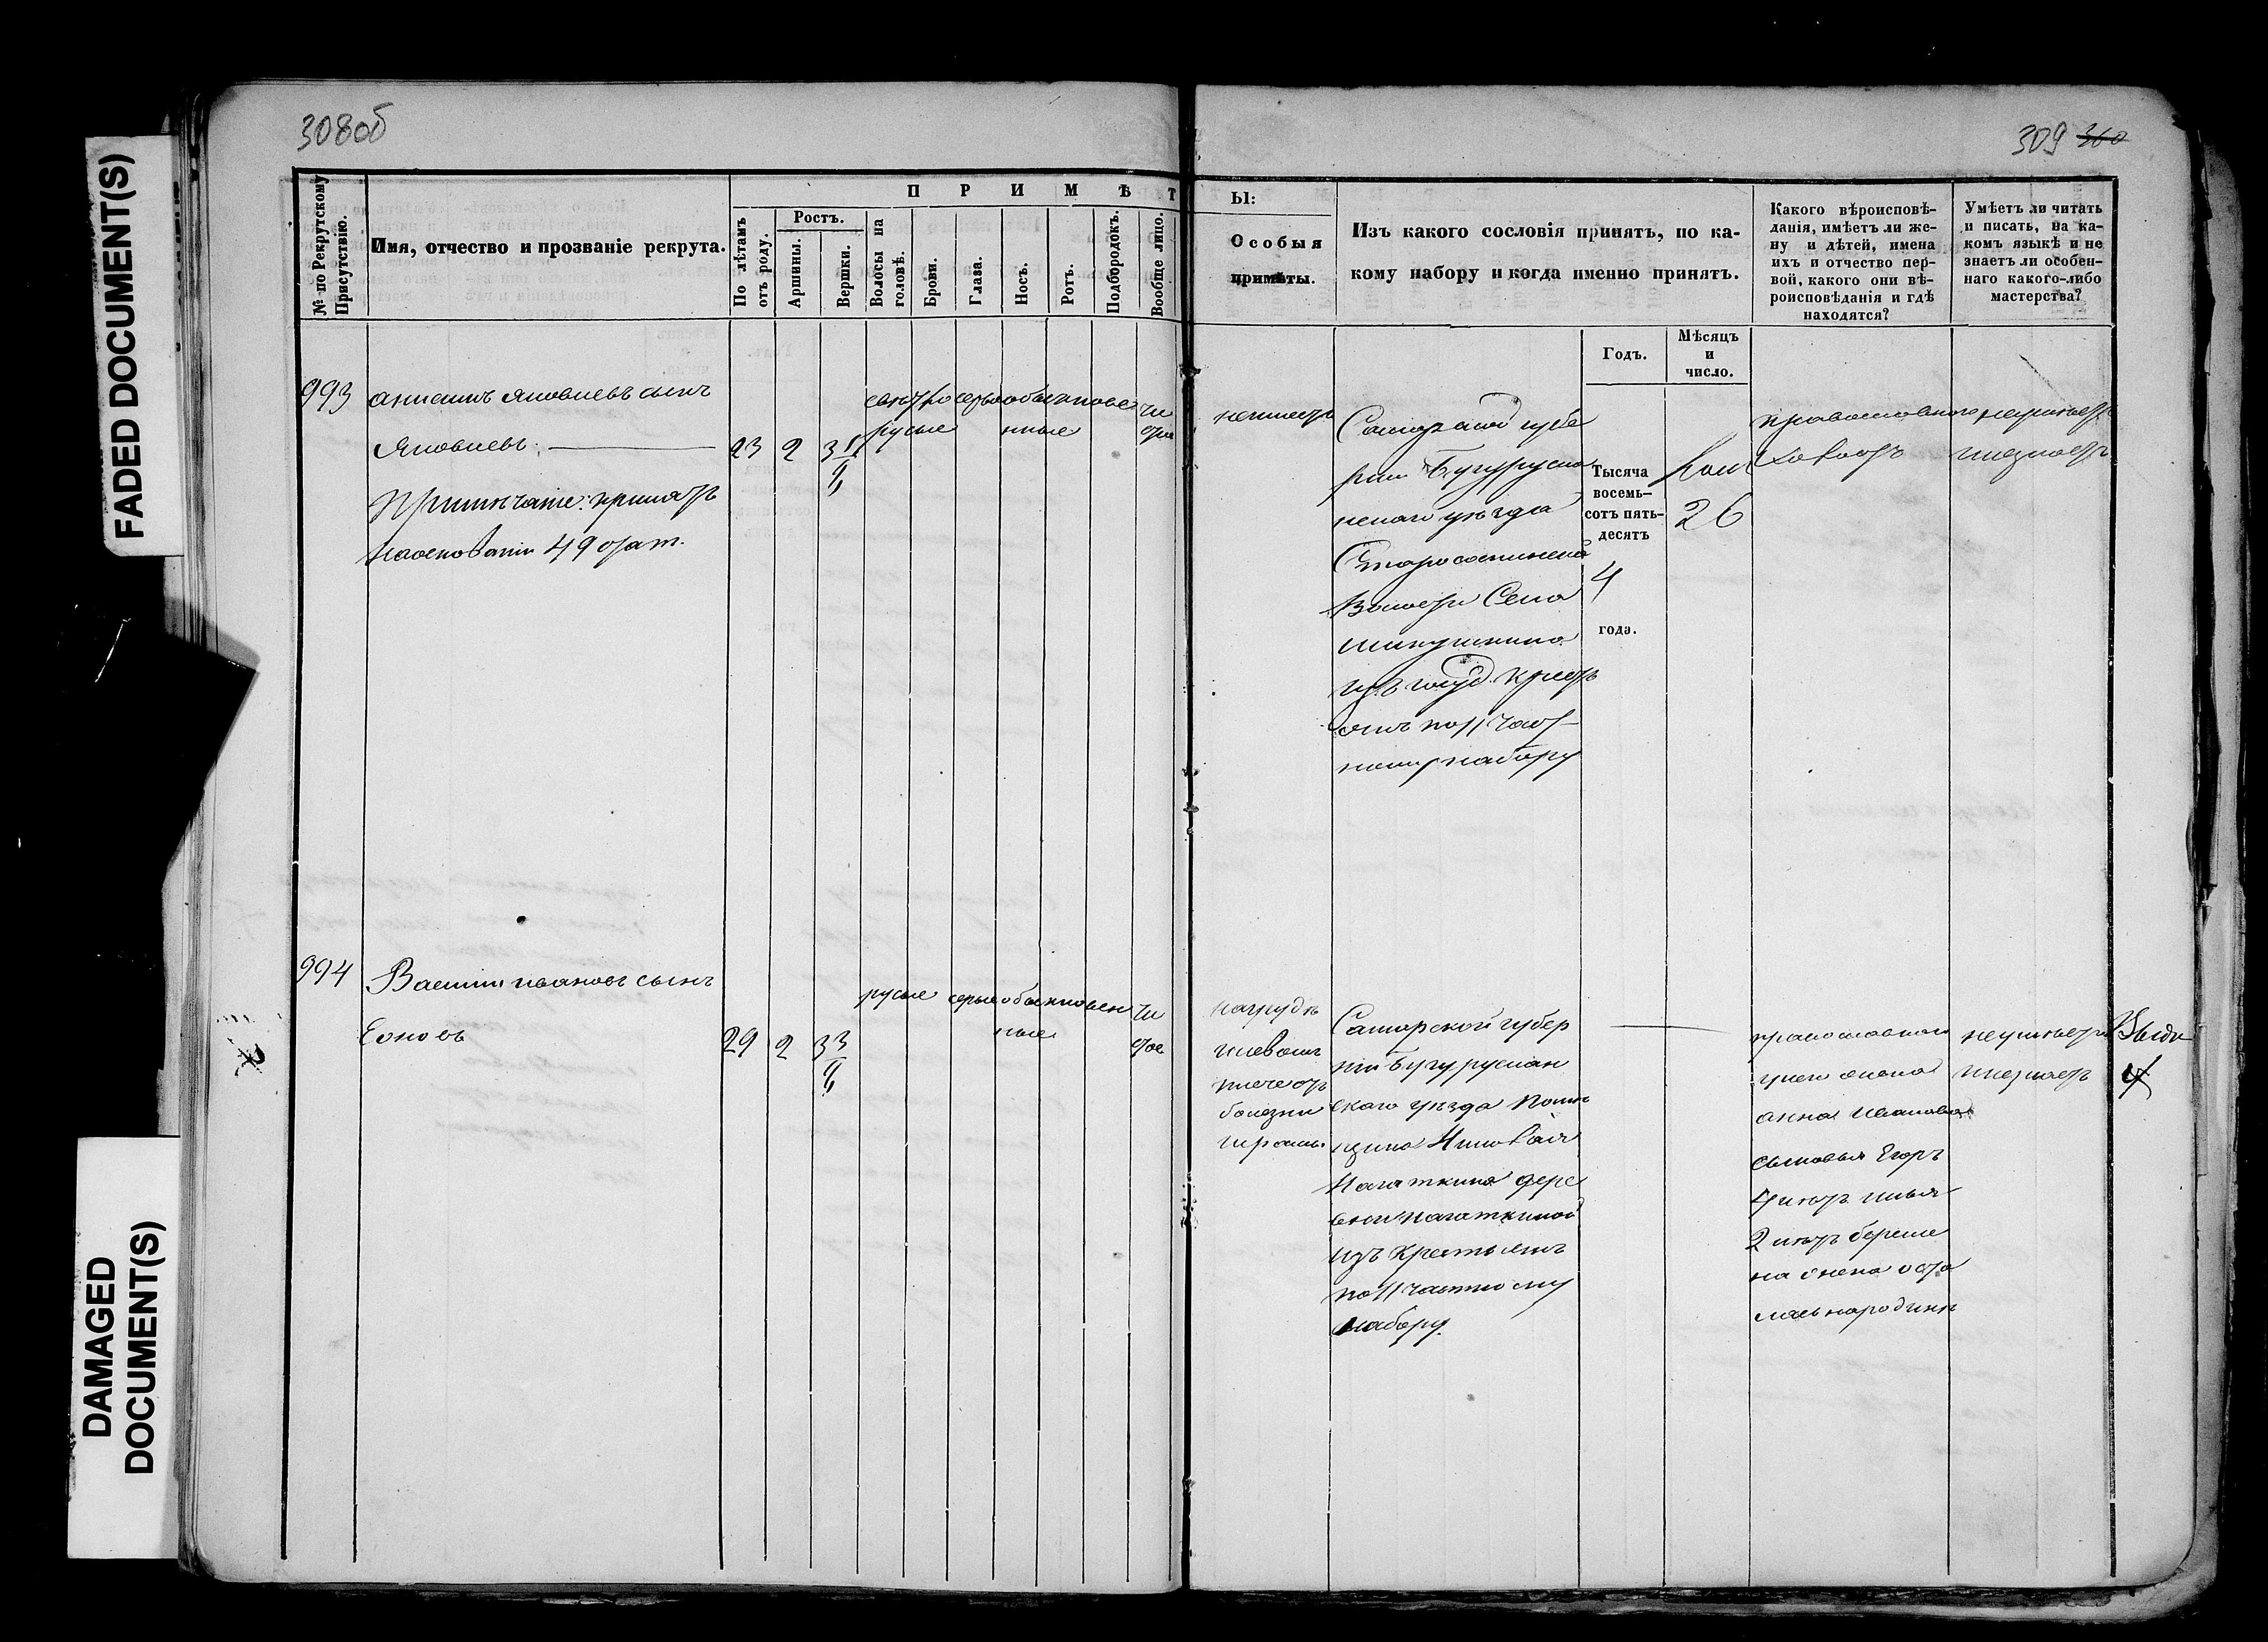 308об
309 360
FADED DOCUMENT(S)
DAMAGED DOCUMENT(S)
№ по Рекрутскому Присутствію.
Имя, отчество и прозваніе рекрута.
П Р И М Ѣ Т
По лѣтамъ отъ роду.
Ростъ.
Аршины.
Вершки.
Волосы на головѣ.
Брови.
Глаза.
Носъ.
Ротъ.
Подбородокъ.
Вообще лицо.
Ы:
Особыя
примѣты.
Изъ какого сословія принятъ, по ка-
кому набору и когда именно принятъ.
Годъ.
Мѣсяцъ
и
число.
Какого вѣроисповѣ-
данія, имѣетъ ли же-
ну и дѣтей, имена
ихъ и отчество пер-
вой, какого они вѣ-
роисповѣданія и гдѣ
находятся?
Умѣетъ ли читать
и писать, на ка-
комъ языкѣ и не
знаетъ ли особен-
наго какого-либо
мастерства?
993
Анисимъ Яковлевъ сынъ
Яковлевъ.
Примѣчаніе: принятъ
на основаніи 49
23
2
3
русые
обыкнове
нные
чи
неимѣетъ
Самарской губе
рніи Бугурусла
нскаго уѣзда
Волости Села
Микушкина
изъ госуд. крест
янъ по 11 част
ному набору
Тысяча
восемь-
сотъ пять-
десятъ
4
года.
26
православнаго
холостъ
неумѣетъ
и незнаетъ
994
Василій Ивановъ сынъ
29
2
3 3
русые
серые
обыкновен
ные
чи
стое
на грудѣ
и левомъ
плече отъ
болезни
шрамы.
Самарской губер
ніи Бугуруслан
скаго уѣзда Помѣ
щика Николая
Нагаткина дере
вни Нагаткиной
изъ крестьянъ
по 11 частному
набору.
православнаго
у него жена
Анна Иванова
сыновья Егоръ
4 летъ Илья
2 летъ береме
на жена оста
лась народинѣ
неумѣетъ
и незнаетъ